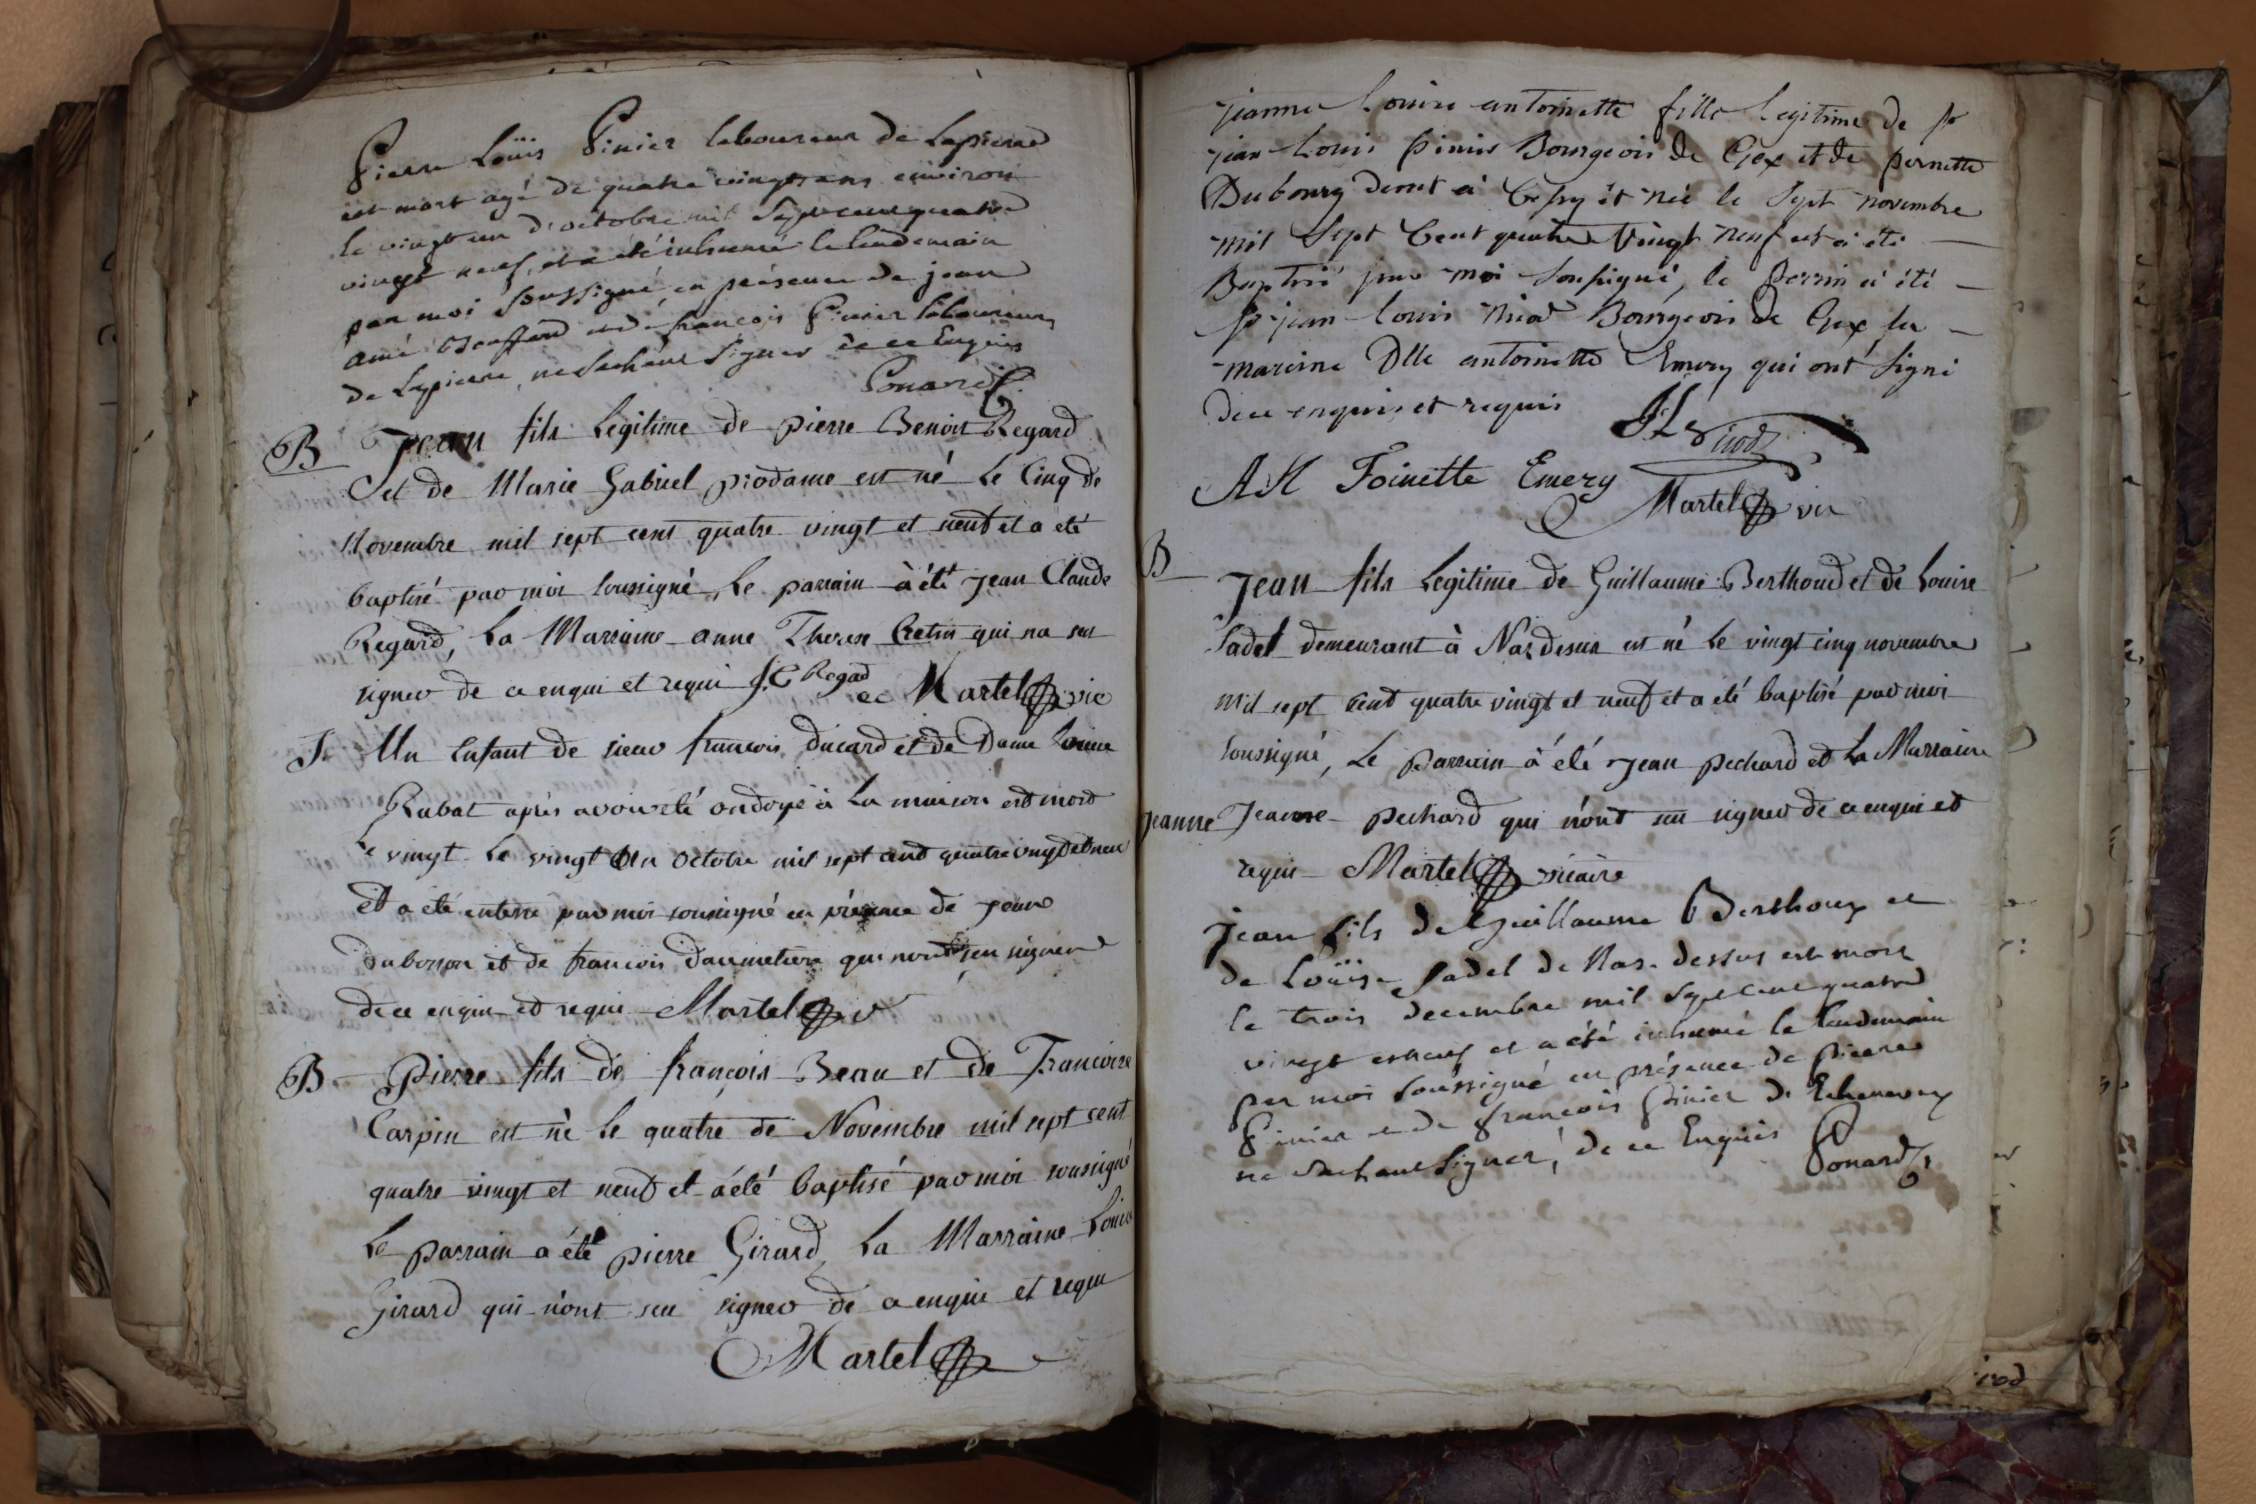 Pierre Loüis Pinier laboureur de Lapierre
est mort agé de quatre vingt ans environ
le vingt un d'octobre mil sept cent quatre
vingt neuf, et a été inhumé le lendemain
par moi soussigné, en présence de jean
amé et de françois Pinier laboureurs
de Lapierre, ne sachant signer de ce Enquis
Ponard
B Jean fils Légitime de pierre Benoit Regard
et de Marie Gabriel prodame est né Le Cinq de
Novembre mil sept cent quatre vingt et neuf et a eté
baptisé par moi soussigné, Le parrain à été jean Claude
Regard, La Marraine anne Therese Cretin qui na su
signer de ce enqui et requi J.C Regad
Martel vic
S. Un Enfant de sieur francois ducard et de Dame Louise
Rabat aprés avoir eté ondoyé à La maison est mort
Le vingt Le vingt Un octobre mil sept cent quatre vingt et neuf
et a eté enterré par moi soussigné en présence de jean
dubosson et de francois daumetiere qui n'ont seu signer
de ce enqui et requi Martel v
B Pierre fils de françois Beau et de Francoise
Carpin est né Le quatre de Novembre mil sept cent
quatre vingt et neuf et a été baptisé par moi soussigné
Le parrain a été pierre Girard, La Marraine Louise
Girard qui n'ont seu signer de ce enqui et requi
Martel
jeanne Louise antoinette fille legitime de sr
jean Louis Pinier Bourgeois de Gex et de pernette
Dubourg demt à Cessy êt née le Sept novembre
mil Sept Cent quatre Vingt neuf et a été
Baptisé par moi Soussigné, le Perrin a été
sr jean Louis Niod Bourgeois de Gex la
mareine Dlle antoinette Emery qui ont signé
de ce enquis et requis
Toinette Emery
Martel vic
B
Jean fils Legitime de Guillaume Berthoud et de Louise
Sadel demeurant à Naz dessus est né Le vingt cinq novembre
mil sept cent quatre vingt et neuf et a été baptisé par moi
soussigné, Le parrain à été jean pechard et La Marraine
jeanne Jeanne pechard qui n'ont su signer de ce enqui et
requi Martel vicaire
Jean fils de Guillaume Berthoux et
de Loüise Sadel de Nas-dessus est mort
le trois decembre mil sept cent quatre
vingt et neuf et a été inhumé le lendemain
par moi soussigné en présence de pierre
Pinier et de françois Pinier de Echenevex
ne sachant signer, de ce Enquis
Ponard